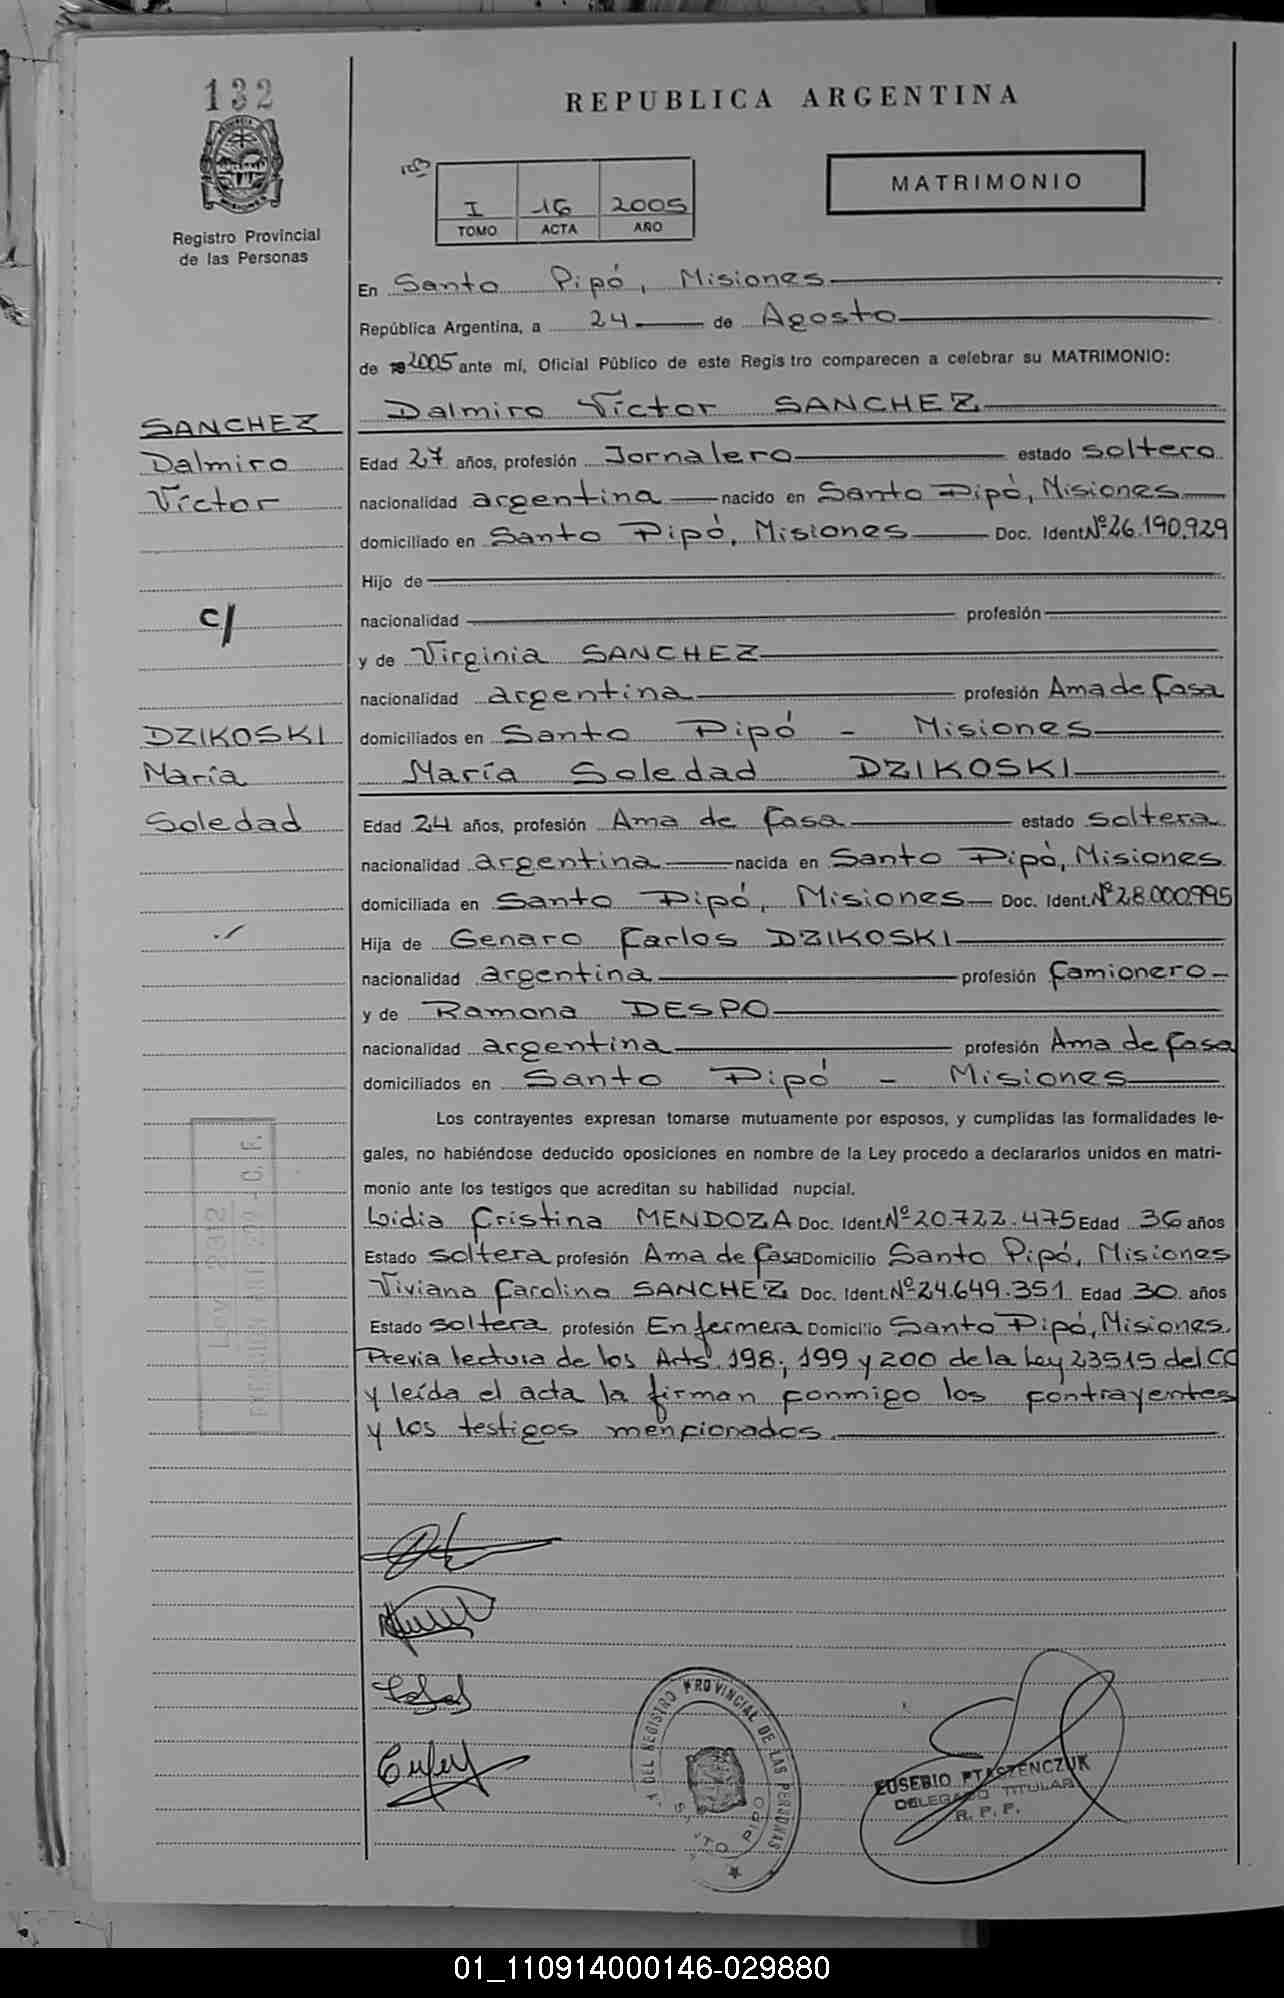 132
REPUBLICA ARGENTINA
MATRIMONIO
I 16 2005
TOMO ACTA AÑO
Registro Provincial
de las Personas
En Santo Pipó, Misiones
República Argentina, a 24 de Agosto
de 2005 ante mí, Oficial Público de este Registro comparecen a celebrar su MATRIMONIO:
SANCHEZ
Dalmiro
Víctor
c/
DZIKOSKI
María
Soledad
Dalmiro Víctor SANCHEZ
Edad 27 años, profesión Jornalero estado soltero
nacionalidad argentina nacido en Santo Pipó, Misiones
domiciliado en Santo Pipó, Misiones Doc. Ident. Nº 26.190.929
Hijo de
nacionalidad profesión
y de Virginia SANCHEZ
nacionalidad argentina profesión Ama de Casa
domiciliados en Santo Pipó - Misiones
María Soledad DZIKOSKI
Edad 24 años, profesión Ama de Casa estado soltera
nacionalidad argentina nacida en Santo Pipó, Misiones
domiciliada en Santo Pipó, Misiones Doc. Ident. Nº 28.000.995
Hija de Genaro Carlos DZIKOSKI
nacionalidad argentina profesión Camionero
y de Ramona DESPO
nacionalidad argentina profesión Ama de Casa
domiciliados en Santo Pipó - Misiones
Los contrayentes expresan tomarse mutuamente por esposos, y cumplidas las formalidades le-
gales, no habiéndose deducido oposiciones en nombre de la Ley procedo a declararlos unidos en matri-
monio ante los testigos que acreditan su habilidad nupcial.
Lidia Cristina MENDOZA Doc. Ident. Nº 20.722.475 Edad 36 años
Estado soltera profesión Ama de Casa Domicilio Santo Pipó, Misiones
Viviana Carolina SANCHEZ Doc. Ident. Nº 24.649.351 Edad 30 años
Estado soltera profesión Enfermera Domicilio Santo Pipó, Misiones.
Previa lectura de los Arts. 198, 199 y 200 de la Ley 23515 del CC
y leída el acta la firman conmigo los contrayentes
y los testigos mencionados.
DEL REGISTRO PROVINCIAL DE LAS PERSONAS
SANTO PIPO
EUSEBIO PTASZENCZUK
DELEGADO TITULAR
R. P. P.
01_110914000146-029880